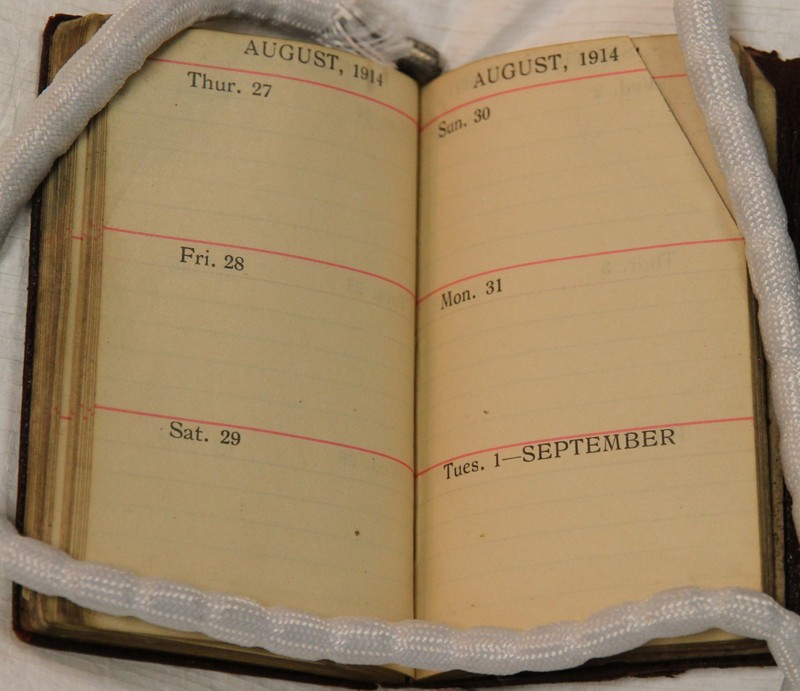 AUGUST, 1914
Thur. 27
Fri. 28
Sat. 29
AUGUST, 1914
Sun. 30
Mon. 31
Tues. 1—SEPTEMBER